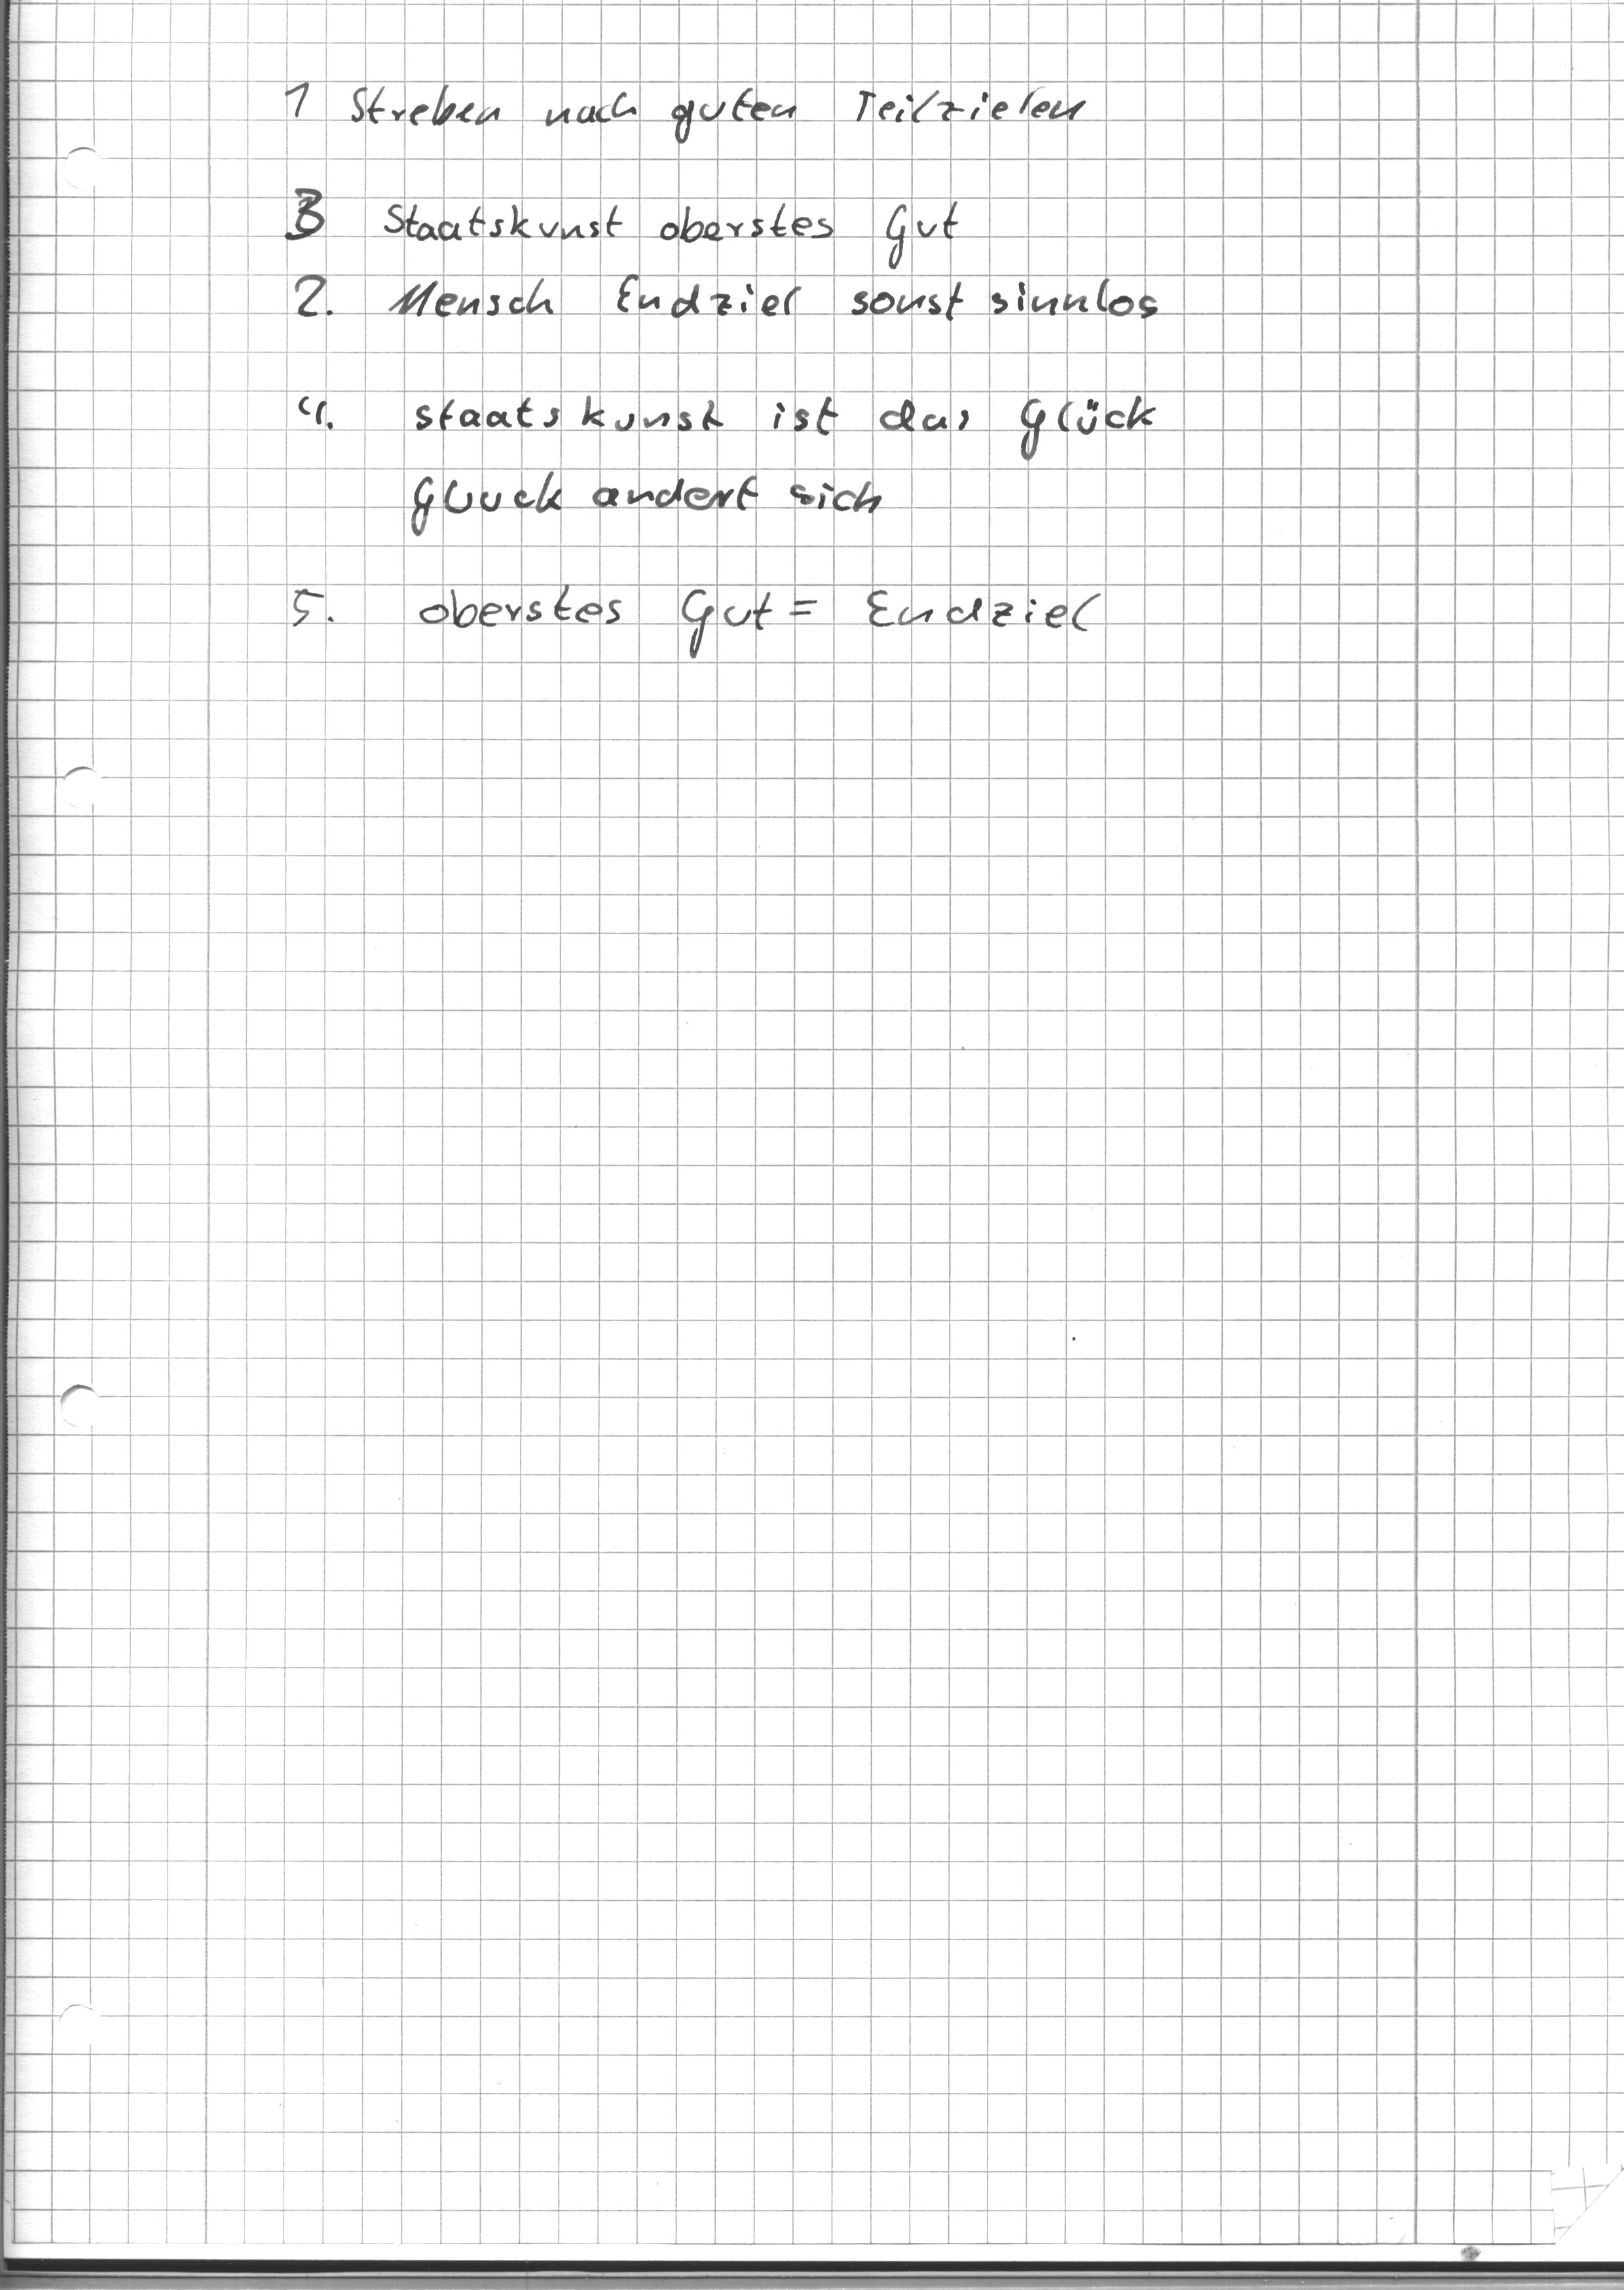 1 Streben nach guten Teilzielen
3 Staatskunst oberstes Gut
2. Mensch Endziel sonst sinnlos
4. staatskunst ist das Glück
Gluck andert sich
5. oberstes Gut = Endziel